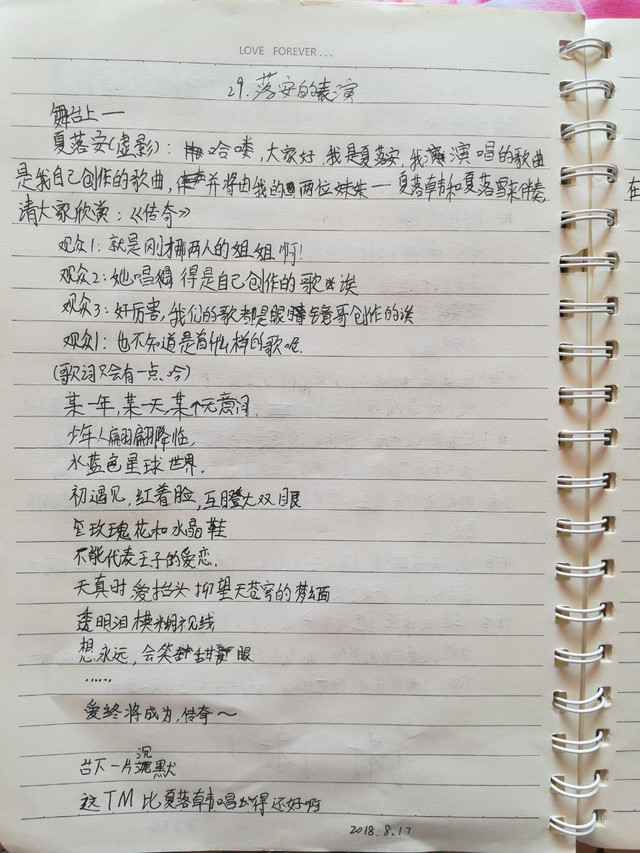 LOVE FOREVER...
29.落安的表演
舞台上一
夏落安(虚影):哈喽,大家好,我是夏落安,我演唱的歌曲
是我自己创作的歌曲,并将由我的两位妹妹一夏落韩和夏落雪来伴奏
请大家欣赏:《传奇》
观众1:就是刚才那两人的姐姐啊!
观众2:她唱得是自己创作的歌诶
观众3:好厉害,我们的歌都是眼镜哥创作的诶
观众1:也不知道是首什么样的歌呢.
(歌词只会有一点、吟)
某一年,某一天,某个无意间,
少年人翩翩降临,
水蓝色星球世界.
初遇见,红着脸,互瞪大双眼
玫瑰花和水晶鞋
不能代表王子的爱恋.
天真时爱抬头仰望天苍穹的梦幻面
透明泪模糊视线
想永远,会笑甜眼
......
爱终将成为,传奇~
台下一片沉默
这TM比夏落韩唱得还好啊
2018.8.17
在